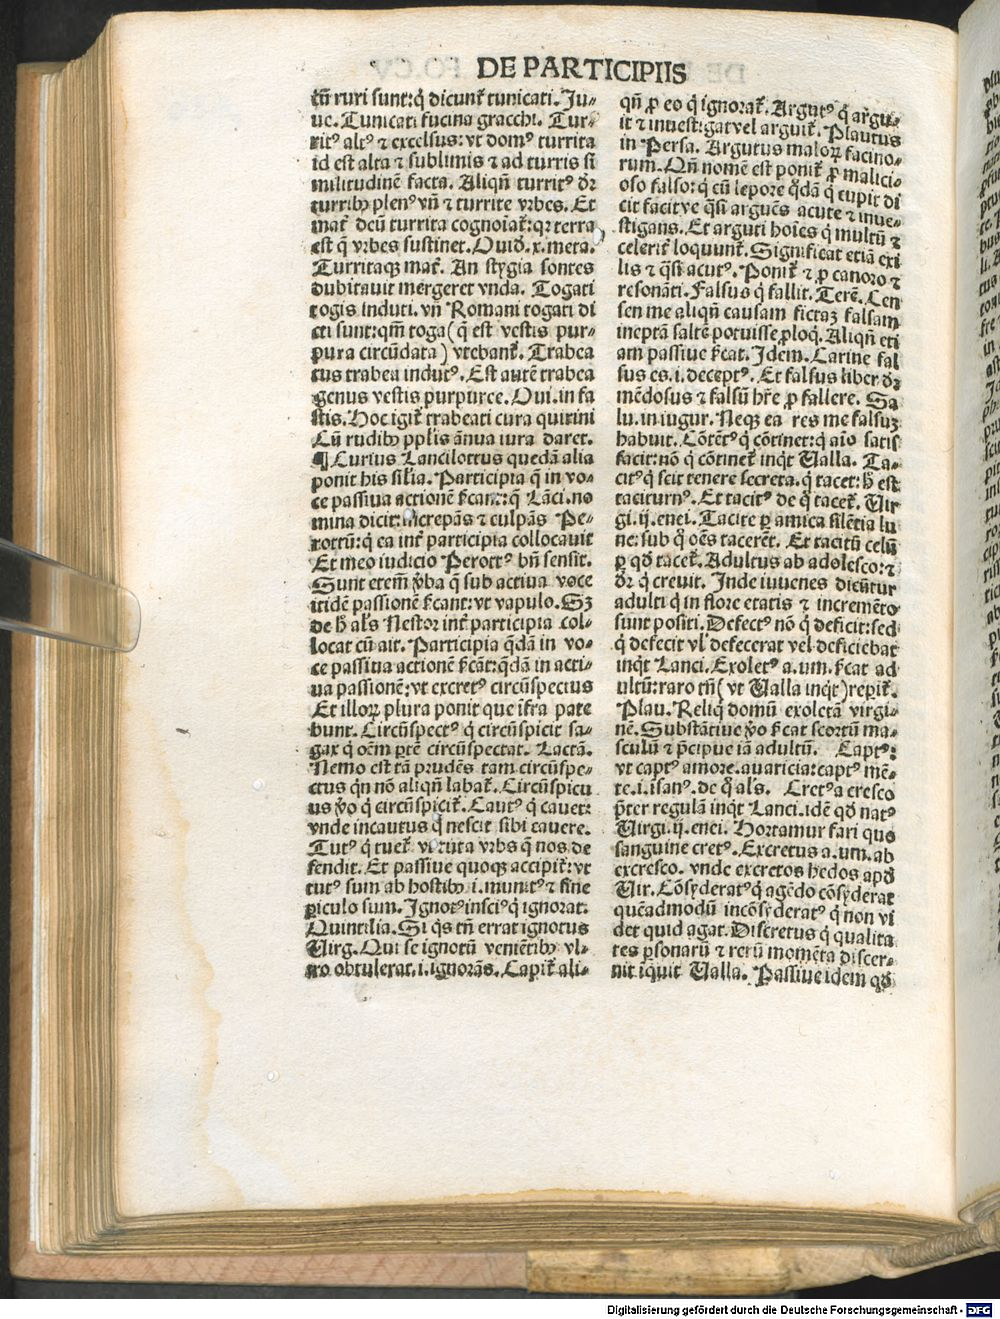 DE PARTICIPIIS
tñ ruri sunt:q̃ dicunt̃ tunicati. Ju⸗
ue. Tunicati fuscina gracchi. Tur⸗
ritꝰ altꝰ ⁊ excelsus: vt domꝰ turrita
id est alta ⁊ sublimis ⁊ ad turris si
militudinē facta. Aliqñ turritꝰ dr̃
turribꝫ plenꝰ vñ ⁊ turrite vrbes. Et
mat̃ deũ turrita cognoīat̃: qꝛ terra
est q̃ vrbes sustinet. Ouid̃. x. meta.
Turritaqꝫ mat̃. An stygia sontes
dubitauit mergeret vnda. Togati
togis induti. vñ Romani togati di
cti sunt: qm̃ toga (q̃ est vestis pur⸗
pura circũdata) vtebant̃. Trabea
tus trabea indutꝰ. Est autē trabea
genus vestis purpuree. Oui. in fa
stis. Hoc igit̃ trabeati cura quirini
Cũ rudibꝫ pp̃lis ānua iura daret.
¶ Curius Lancilottus quedā alia
ponit his silia. Participia q̃ in vo⸗
ce passiua actionē ſ̃cant: q̃ Lāci. no
mina dicit: increpās ⁊ culpās Pe⸗
rottũ: q̃ ea int̃ participia collocauit
Et meo iudicio Perottꝰ bñ sensit.
Sunt etem̃ ṽba q̃ sub actiua voce
itidē passionē ſ̃cant: vt vapulo. Sꝫ
de h̃ al̃s Nestor int̃ participia col⸗
locat cũ ait. Participia q̃dā in vo⸗
ce passiua actionē ſ̃cāt: q̃dā in acti⸗
ua passionē: vt excretꝰ circũspectus
Et illoꝝ plura ponit que īfra pate
bunt. Circũspectꝰ q̃ circũspicit sa⸗
gax q̃ oēm ꝑtē circũspectat. Lactā.
Nemo est tā prudēs tam circũspe⸗
ctus qñ nō aliqñ labat̃. Circũspicu
us ṽo q̃ circũspicit̃. Cautꝰ q̃ cauet:
vnde incautus q̃ nescit sibi cauere.
Tutꝰ q̃ tuet̃ vt tuta vrbs q̃ nos de
fendit. Et passiue quoqꝫ accipit̃: vt
tutꝰ sum ab hostibꝫ .i. munitꝰ ⁊ sine
ꝑiculo sum. Ignotꝰ insciꝰ q̃ ignorat.
Quintilia. Si q̃s tñ errat ignotus
Virg. Qui se ignotũ veniētibꝫ vl⸗
tro obtulerat .i. ignorās. Capit̃ ali⸗
qñ ꝓ eo q̃ ignorat̃. Argutꝰ q̃ argu⸗
it ⁊ inuestigat vel arguit̃. Plautus
in Persa. Argutus maloꝝ facino⸗
rum. Qñ nomē est ponit̃ ꝓ malici⸗
oso falso: q̃ cũ lepore q̃dā q̃ cupit di
cit facitve q̃si arguēs acute ⁊ inue⸗
stigans. Et arguti hoīes q̃ multũ ⁊
celerit̃ loquunt̃. Significat etiā exi
lis ⁊ q̃si acutꝰ. Ponit̃ ⁊ ꝓ canoro ⁊
resonāti. Falsus q̃ fallit. Terē. Cen
sen me aliqñ causam fictaꝫ falsam
ineptā saltē potuisse ꝓloq̃. Aliqñ eti
am passiue ſ̃cat. Idem. Carine fal
sus es .i. deceptꝰ. Et falsus liber dr̃
mēdosus ⁊ falsũ hr̃e ꝓ fallere. Sa
lu. in iugur. Neqꝫ ea res me falsuꝫ
habuit. Cōtētꝰ q̃ cōtinet: q̃ aīo satis
facit: nō q̃ cōtinet̃ inq̃t Valla. Ta⸗
citꝰ q̃ scit tenere secreta. q̃ tacet: h̃ est
taciturnꝰ. Et tacitꝰ de q̃ tacet̃. Vir
gi. ij. enei. Tacite ꝑ amica silētia lu
ne: sub q̃ oēs tacerēt. Et tacitũ celũ
ꝑ qd̃ tacet̃. Adultus ab adolesco: ⁊
dr̃ q̃ creuit. Inde iuuenes dicũtur
adulti q̃ in flore etatis ⁊ incremēto
sunt positi. Defectꝰ nō q̃ deficit: sed
q̃ defecit vl̃ defecerat vel deficiebat
inq̃t Lanci. Exoletꝰ a. um. ſ̃cat ad
ultũ: raro tñ (vt Valla inq̃t) reꝑit̃.
Plau. Reliq̃ domũ exoletā virgi⸗
nē. Substātiue ṽo ſ̃cat scortũ ma⸗
sculũ ⁊ p̃cipue iā adultũ. Captꝰ:
vt captꝰ amore. auaricia: captꝰ mē⸗
te .i. isanꝰ. de q̃ al̃s. Cretꝰ a cresco
p̃ter regulā inq̃t Lanci. idē qd̃ natꝰ
Virgi. ij. enei. Hortamur fari quo
sanguine cretꝰ. Excretus a. um. ab
excresco. vnde excretos hedos apd̃
Vir. Cōsyderatꝰ q̃ agēdo cōsyderat
quēadmodũ incōsyderatꝰ q̃ non vi
det quid agat. Discretus q̃ qualita
tes ꝑsonarũ ⁊ rerũ momēta discer⸗
nit īquit Valla. Passiue idem qd̃
Digitalisierung gefördert durch die Deutsche Forschungsgemeinschaft - DFG